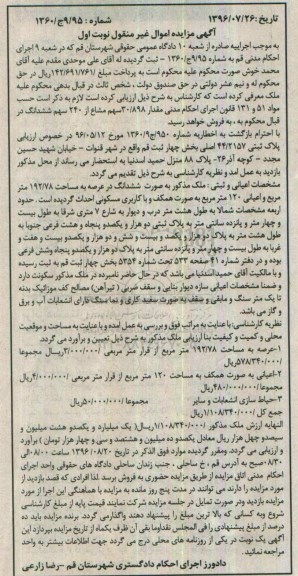 تاریخ :۱۳۹۶/۰۷/۲۶ شماره : ۹/۹۵ج/۱۳۶۰
آگهی مزایده اموال غیر منقول نوبت اول
به موجب اجراییه صادره از شعبه ۱۰ دادگاه عمومی حقوقی شهرستان قم که در شعبه ۹ اجرای
احکام مدنی قم به شماره ۹/۹۵ج/۱۳۶۰ - ثبت گردیده له آقای علی موحدی مقدم علیه آقای
محمد خوش صورت محکوم علیه محکوم است به پرداخت مبلغ ۱۴۲/۶۹۱/۷۶۱ریال در حق
محکوم له و نیم عشر دولتی در حق صندوق دولت ، شخص ثالث در قبال بدهی محکوم علیه
ملک معرفی کرده است که کارشناس به شرح ذیل ارزیابی کرده است لازم به ذکر است حسب
مواد ۵۱ و ۱۳۱ قانون اجرای احکام مدنی مقدار ۳۰/۸۹۸سهم مشاع از ۲۴۰ سهم ششدانگ در
قبال محکوم به ، به فروش خواهد رسید.
با احترام بازگشت به اخطاریه شماره ۹۵۰ج۱۳۶۰/۹ مورخ ۹۶/۰۵/۱۲ در خصوص ارزیابی
پلاک ثبتی ۴۴/۲۱۵۷ اصلی بخش چهار ثبت قم واقع در شهر قنوات – خیابان شهید حسین
مجدد – کوچه آذر۲۶- پلاک ۸۸ منزل حمید اسدنیا به استحضار می رساند از محل مذکور
بازدید به عمل آمد و نظریه کارشناسی به شرح ذیل تقدیم می گردد.
مشخصات اعیانی و ثبتی : ملک مذکور به صورت ششدانگ در عرصه به مساحت ۱۹۲/۷۸ متر
مربع و اعیانی ۱۲۰ متر مربع به صورت همکف و با کاربری مسکونی احداث گردیده است. حدود
اربعه مشخصات شمالا به طول هشت متر درب و دیوار به شارع ۷ متری شرقا به طول بیست
و چهار متر و پانزده سانتی متر به پلاک ثبتی دو هزار و یکصد و پنجاه و هشت فرعی جنوبا به
طول هشت متر به پلاک دو هزار و یکصد و بیست و شش و دو هزار و یکصدو بیست و هفت و
غربا به طول بیست و چهار متر و پانزده سانتی متر به پلاک دو هزار و یکصد و پنجاه وشش فرعی
بوده و در دفتر شماره ۴۱ صفحه ۵۳۳ تحت شماره ۵۳۵۴ بخش چهار ثبت قم به ثبت رسیده
و با مالکیت آقای حمید اسدنیا می باشد که در حال حاضر نامبرده در ملک مذکور سکونت دارد
و ضمنا مشخصات اعیانی سازه دیوار بنایی و سقف ضربی ( تیرآهن) مصالح کف موزائیک بدنه
تا یک متر سنگ و مابقی و سقف به صورت سفید کاری و نما سنگ دارای انشعابات آب و برق
و گاز می باشد.
نظریه کارشناسی: با عنایت به مراتب فوق و بررسی به عمل آمده و با عنایت به مساحت و موقعیت
محلی و کمیت و کیفیت بنا ارزیابی ملک مذکور به شرح ذیل تعیین و برآورد می گردد.
۱-عرصه به مساحت ۱۹۲/۷۸ متر مربع از قرار متر مربعی /۳/۰۰۰/۰۰۰ریال مجموعا
۵۷۸/۳۴۰/۰۰۰/ریال
۲-اعیانی به صورت همکف به مساحت ۱۲۰ متر مربع از قرار متر مربعی /۴/۰۰۰/۰۰۰ریال
مجموعا/۴۸۰/۰۰۰/۰۰۰ریال
۳-حیاط سازی انشعابات و سایر مجموعا /۵۰/۰۰۰/۰۰۰ریال
جمع کل /۱/۱۰۸/۳۴۰/۰۰۰ریال
النهایه ارزش ملک مذکور /۱/۱۰۸/۳۴۰/۰۰۰ریال( یک میلیارد و یکصدو هشت میلیون و
سیصدو چهل هزار ریال معادل یکصدو ده میلیون و هشتصد و سی و چهار هزار تومان ) برآورد
و ارزیابی می گردد. ومقرر گردیده موارد فوق الذکر در تاریخ ۱۳۹۶/۰۸/۲۰ ساعت ۰۸/۰۰الی
۰۸/۳۰صبح به آدرس قم ، خ ساحلی ، جنب زندان ساحلی دادگاه های حقوقی واحد اجرای
احکام مدنی اتاق مزایده از طریق مزایده حضوری به فروش برسد .لذا افرادی که قصد بازدید از
مورد مزایده را دارند می توانند در مدت پنج روز مانده به مزایده با هماهنگی این اجرا از مورد
مزایده بازدید ودر صورت تمایل در جلسه مزایده شرکت نمایند قیمت پایه از مبلغ کارشناسی
شروع وبه کسانی که بالا ترین مبلغ را پیشنهاد دهند واگذارمی گردد. برنده مزایده باید ده
درصد از مبلغ پیشنهادی را فی المجلس نقداوما بقی آن ظرف یکماه از تاریخ مزایده بپردازد این
آگهی یک نوبت در یکی از روزنامه های محلی درج می گردد جهت اطلاعات بیشتر به واحد
مراجعه نمائید.
دادورز اجرای احکام دادگستری شهرستان قم -رضا زارعی